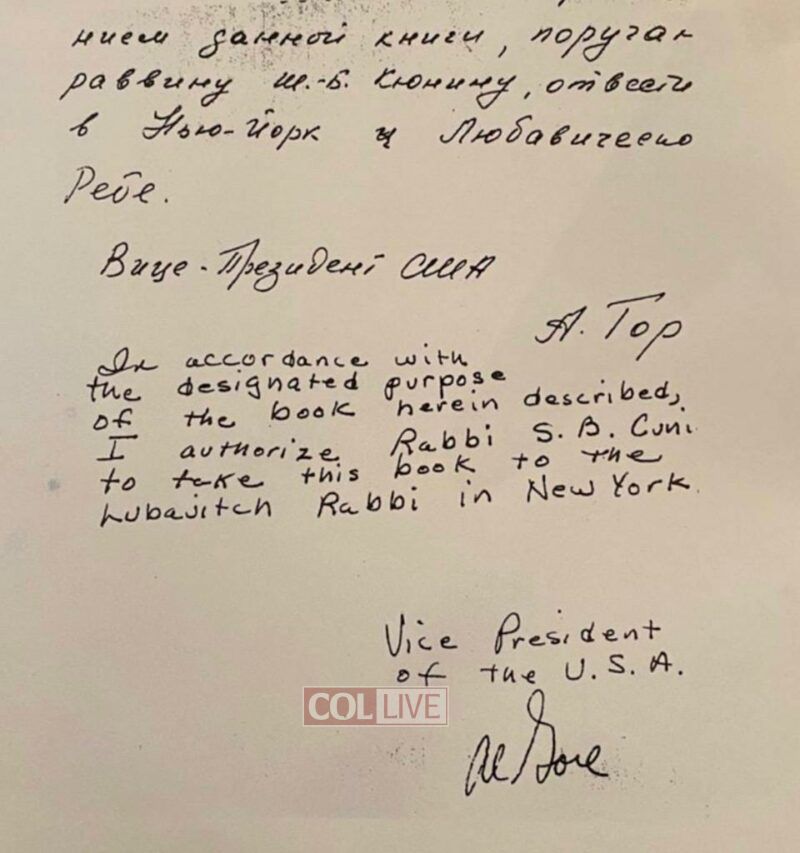 нием данной книги, поручаю
раввину Ш.-Б. Кюнину, отвести
в Нью-Йорк к Любавическо
Ребе.
Вице-Президент США
А. Гор
In accordance with
the designated purpose
of the book herein described,
I authorize Rabbi S. B. Cuni
to take this book to the
Lubavitch Rabbi in New York.
Vice President
of the U.S.A.
COLLIVE
Al Gore